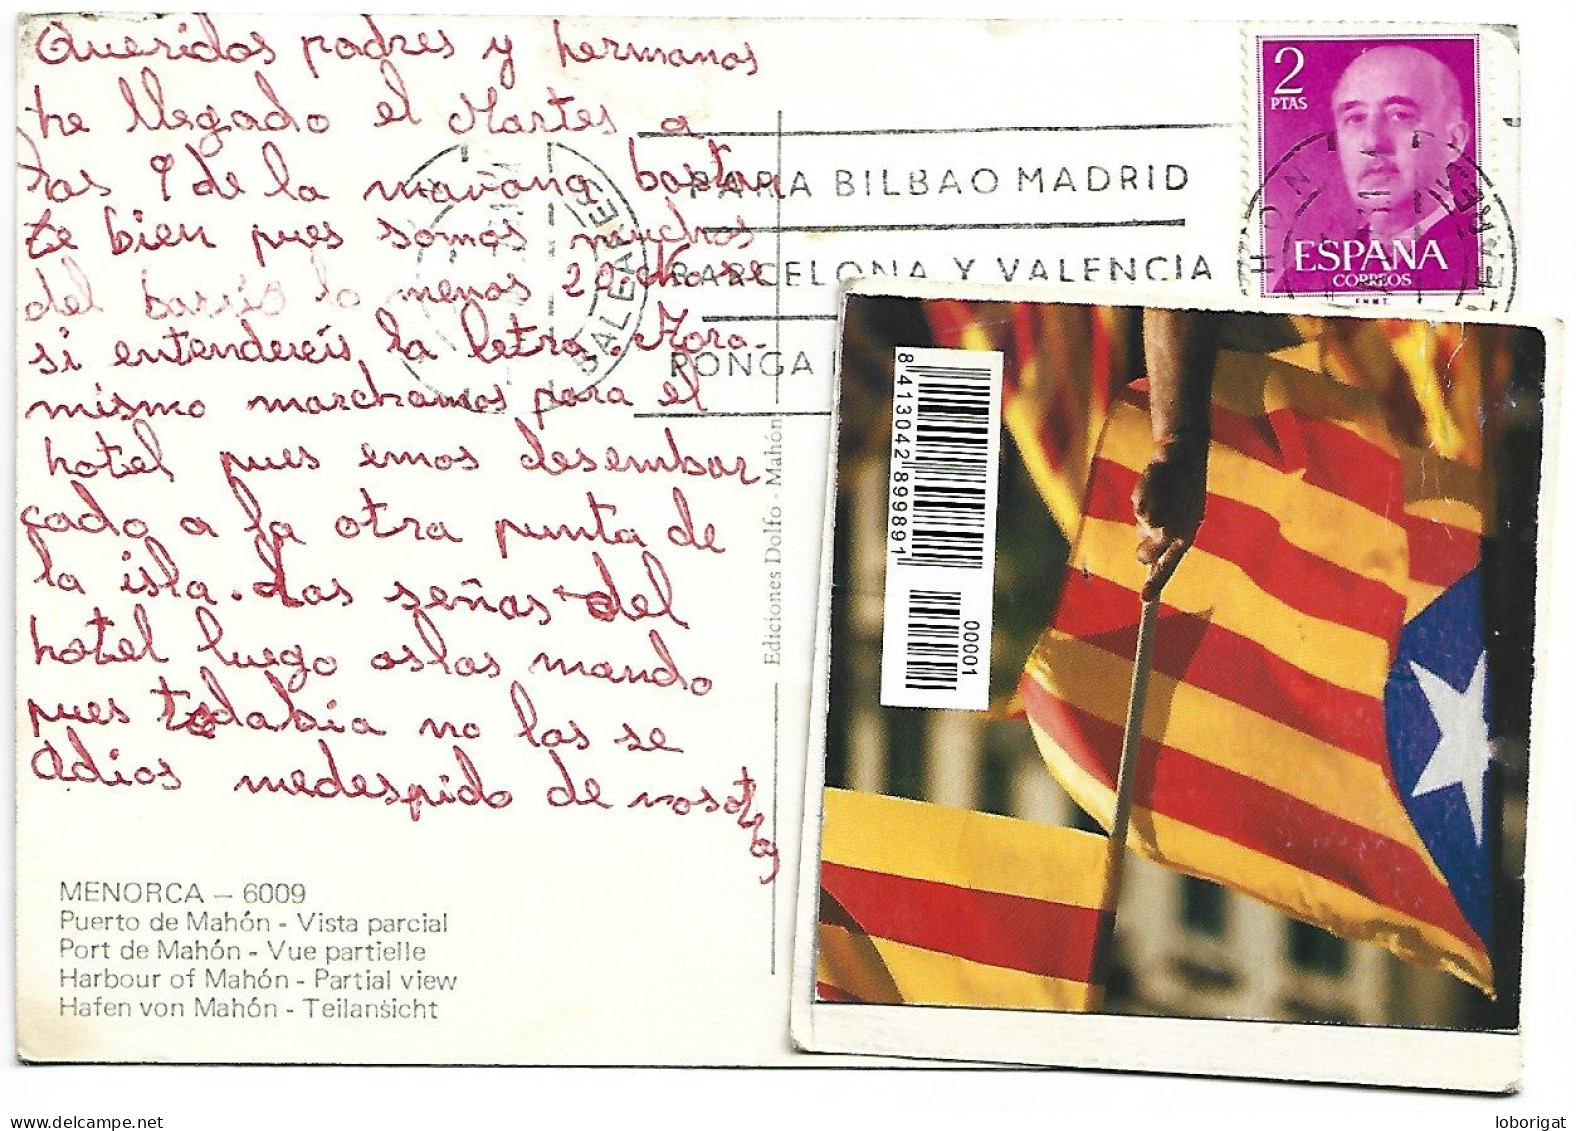 Queridos padres y hermanos
he llegado el Martes a
las 9 de la mañana bastan
te bien pues somos muchos
del barrio lo menos 20 no se
si entendereis la letra. Hora
mismo marchamos para el
hotel pues emos desembar
cado a la otra punta de
la isla. Las señas del
hotel luego oslas mando
pues todabia no las se
Adios medespido de vosotros
MENORCA – 6009
Puerto de Mahón - Vista parcial
Port de Mahón - Vue partielle
Harbour of Mahón - Partial view
Hafen von Mahón - Teilansicht
Ediciones Dolfo - Mahón
PARA BILBAO MADRID
BARCELONA Y VALENCIA
PONGA
BALEARES
2
PTAS
ESPAÑA
CORREOS
8 413042 899891
00001
loborigat